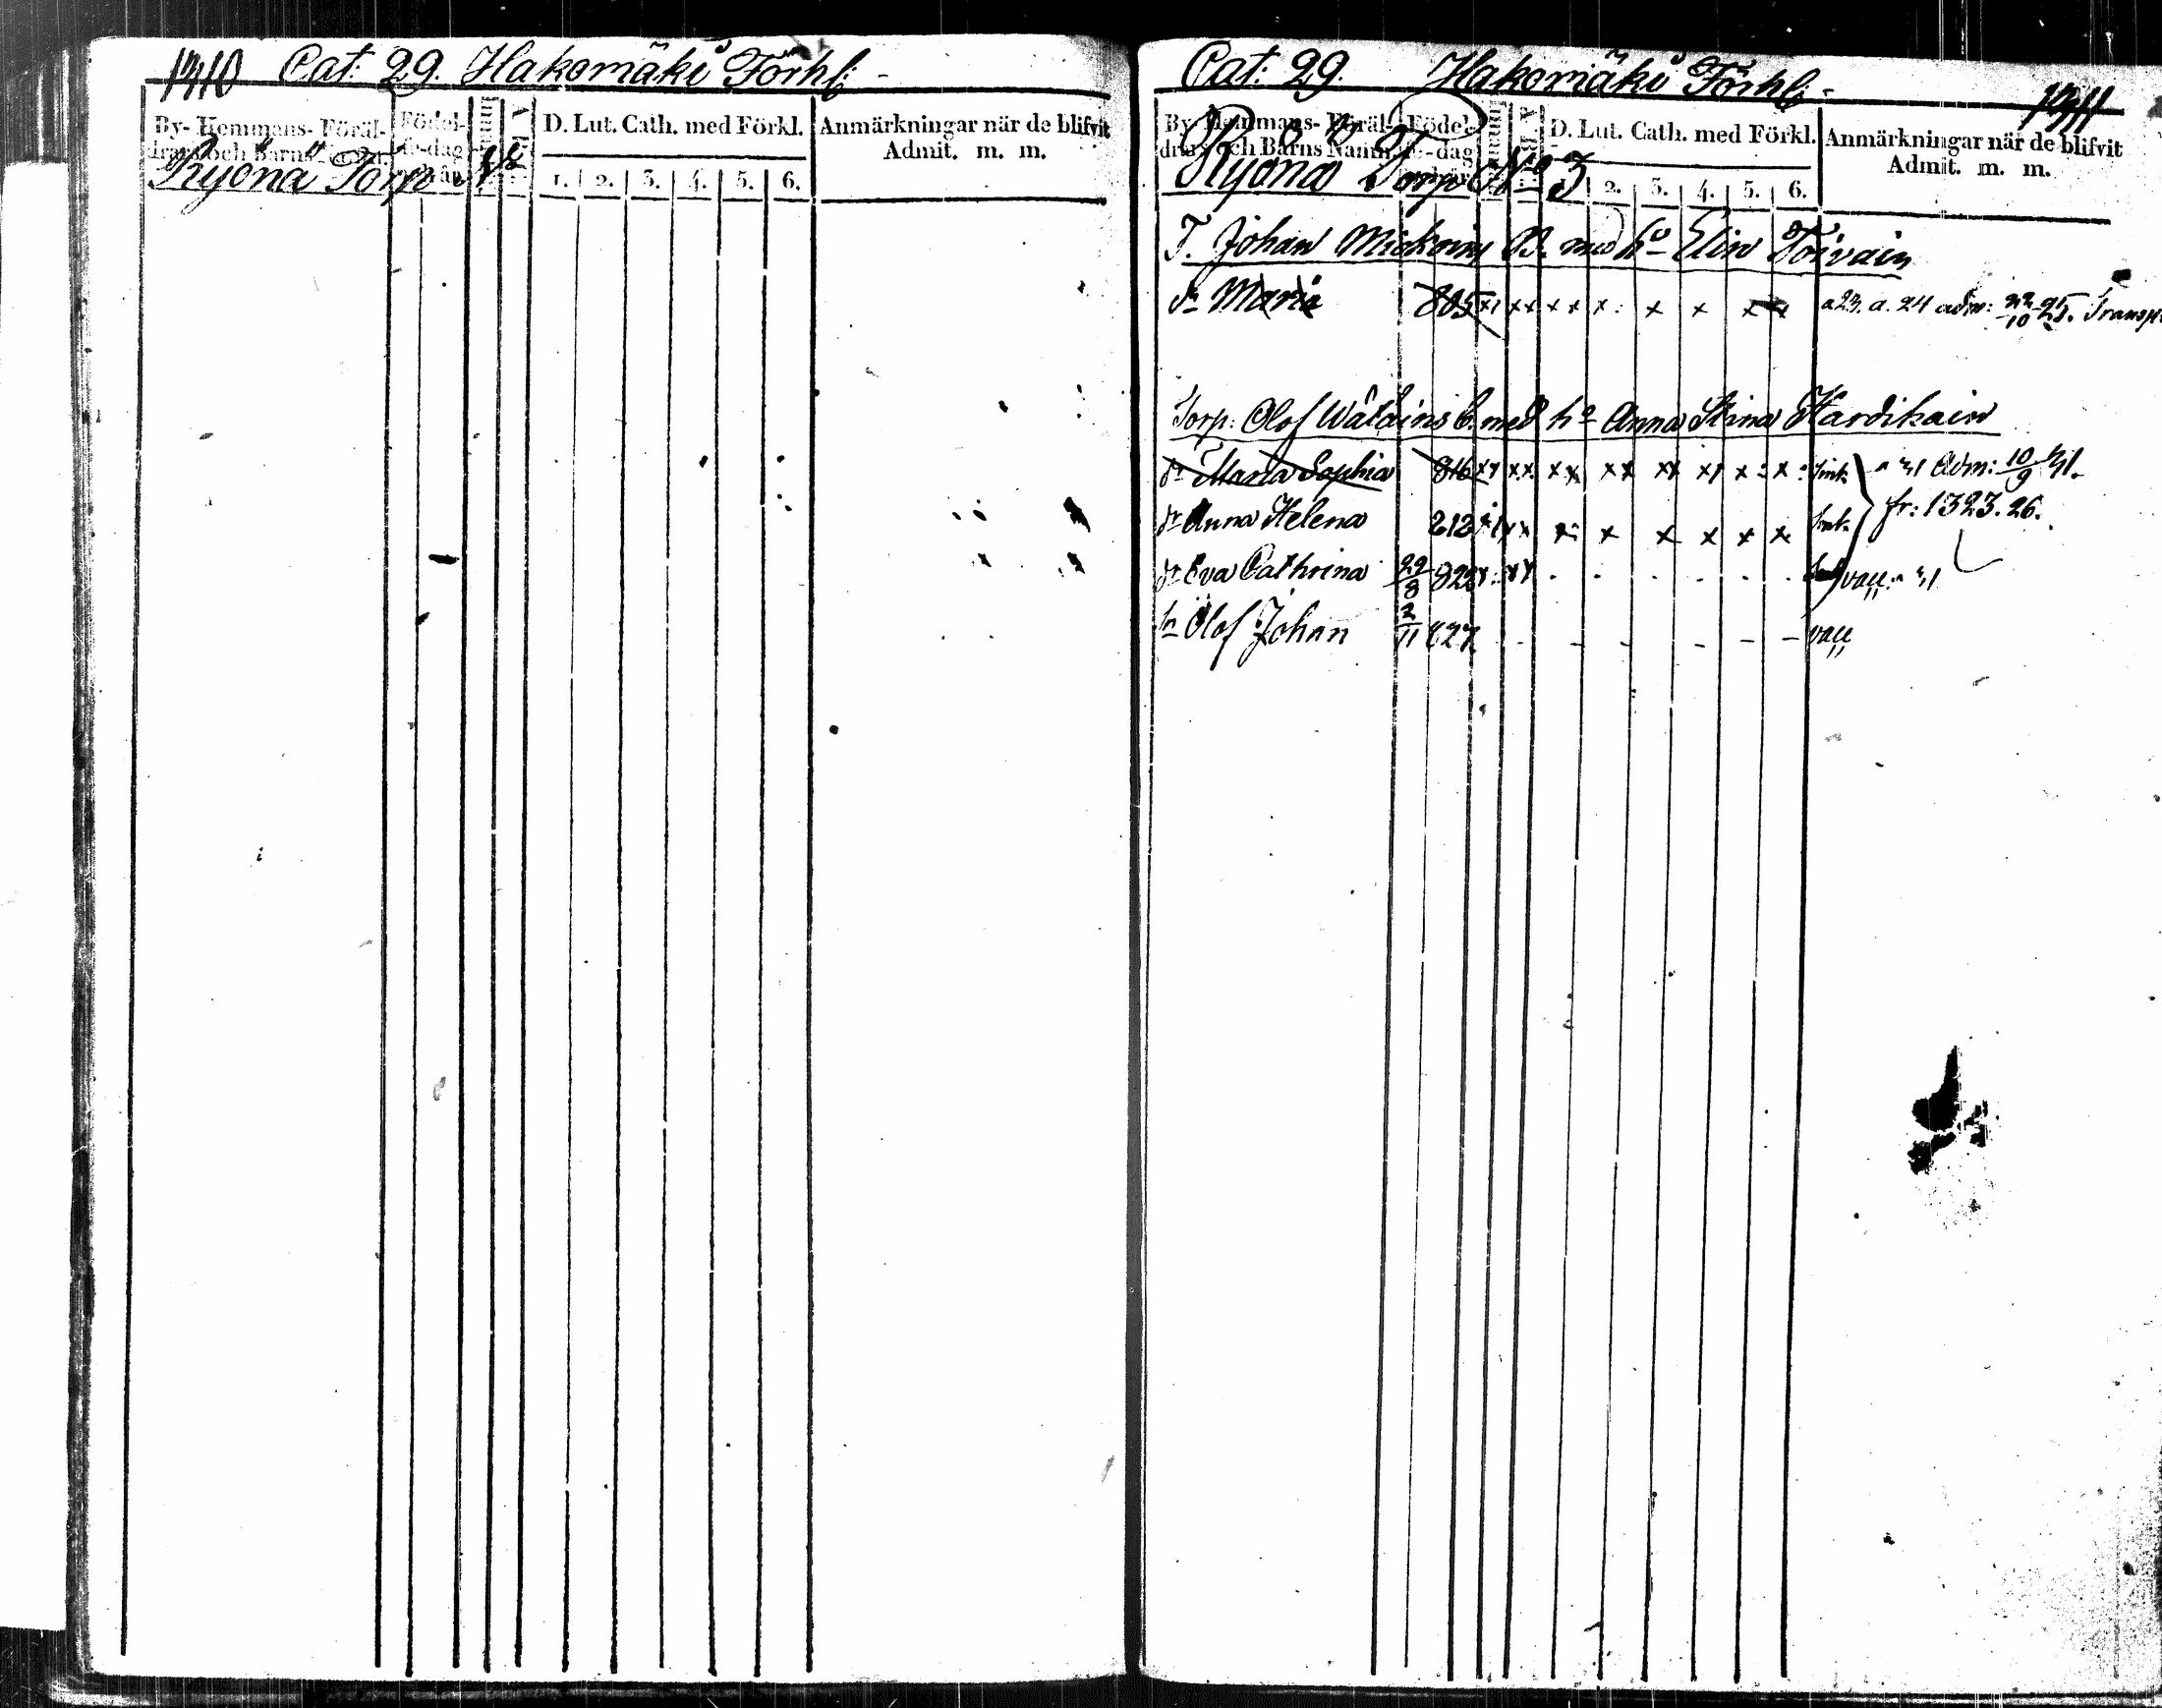 1310 Cat: 29. Hakomäki Förhl:
By- Hemmans- Föräl-
drars och Barns Namn.
Födel-
se-dag
och år.
D. Lut. Cath. med Förkl.
1. 2. 3. 4. 5. 6.
Anmärkningar när de blifvit
Admit. m. m.
Ryönä Torp
Cat: 29. Hakomäki Förhl: 1311
By- Hemmans- Föräl-
drars och Barns Namn.
Födel-
se-dag
D. Lut. Cath. med Förkl.
2. 3. 4. 5. 6.
Anmärkningar när de blifvit
Admit. m. m.
Ryönä Torp No 3
T. Johan B. med ho Elin Toivain
dr Maria 805 x x x x x x x x a 23. a. 24 adm: 25. Transp
Torp: Olof Wätäins B. med ho Anna Stina Hardikain
dr Maria Sophia 816 x x x x x x x x x x x x Adm: 10/9 31.
dr Anna Helena 812 x x x x x x x x fr: 1323. 26.
dr Eva Cathrina 22/8 822 vacc: 31
sn Olof Johan 2/11 827 vacc